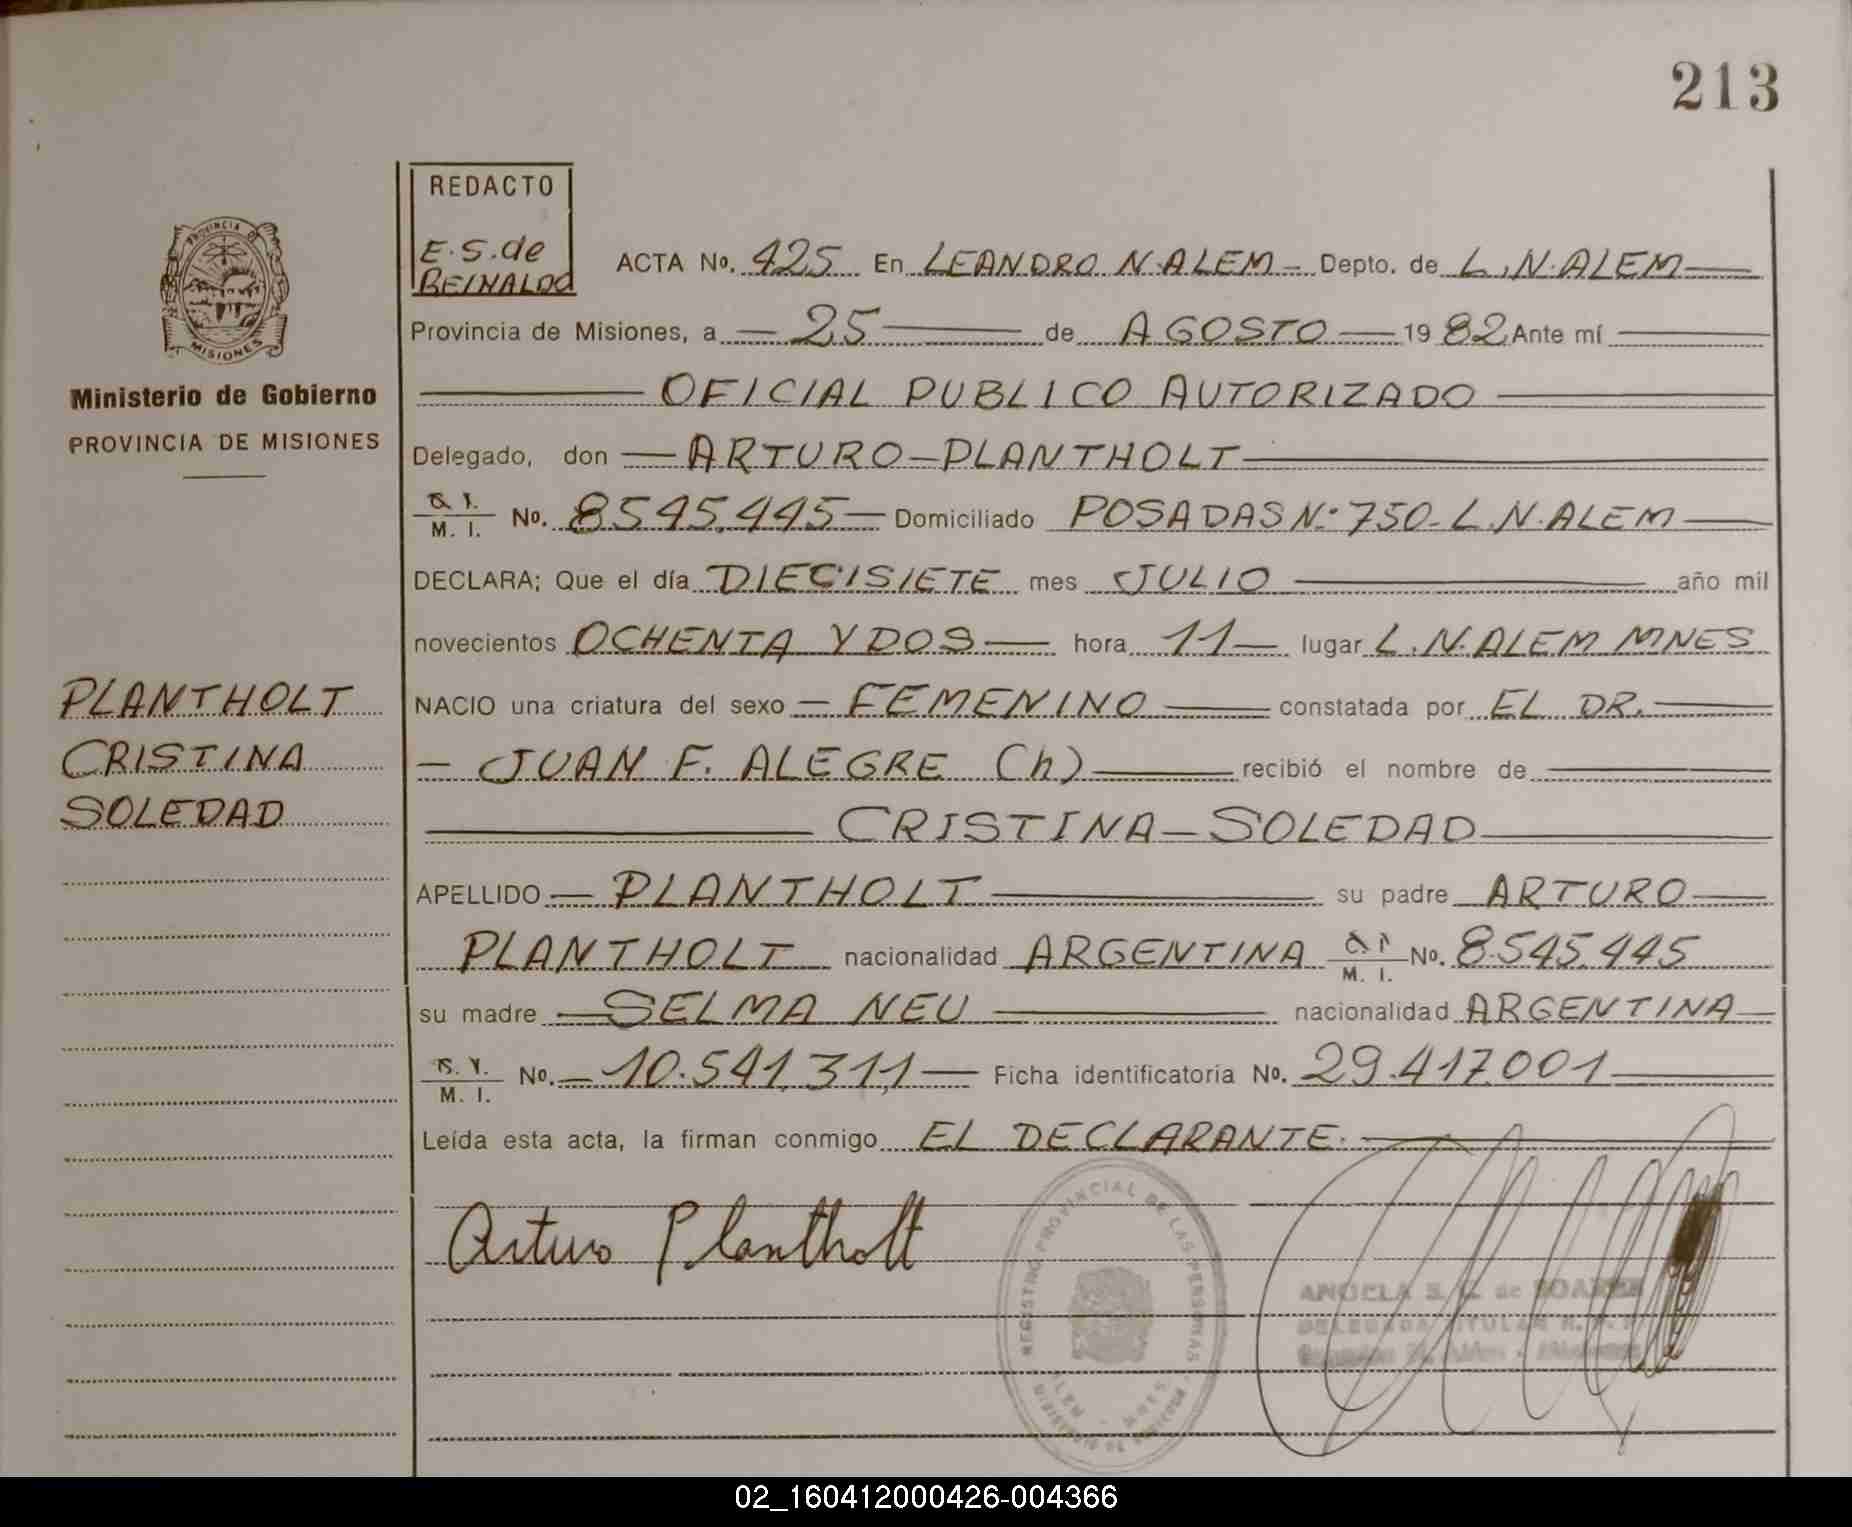 213
REDACTO
E.S. de
REINALDO
PROVINCIA DE
MISIONES
Ministerio de Gobierno
PROVINCIA DE MISIONES
PLANTHOLT
CRISTINA
SOLEDAD
ACTA No. 425 En LEANDRO N. ALEM Depto. de L.N. ALEM
Provincia de Misiones, a 25 de AGOSTO 1982 Ante mí
OFICIAL PUBLICO AUTORIZADO
Delegado, don ARTURO PLANTHOLT
M. I. No. 8.545.445 Domiciliado POSADAS N° 750 - L.N. ALEM
DECLARA; Que el día DIECISIETE mes JULIO año mil
novecientos OCHENTA Y DOS hora 11 lugar L.N. ALEM MNES
NACIO una criatura del sexo FEMENINO constatada por EL DR.
JUAN F. ALEGRE (h) recibió el nombre de
CRISTINA SOLEDAD
APELLIDO PLANTHOLT su padre ARTURO
PLANTHOLT nacionalidad ARGENTINA M. I. No. 8.545.445
su madre SELMA NEU nacionalidad ARGENTINA
M. I. No. 10.541.311 Ficha identificatoria No. 29.417.001
Leída esta acta, la firman conmigo EL DECLARANTE.
Arturo Plantholt
REGISTRO PROVINCIAL DE LAS PERSONAS
ANGELA S. C. de SOAREZ
DELEGADA TITULAR R. P. P.
02_160412000426-004366